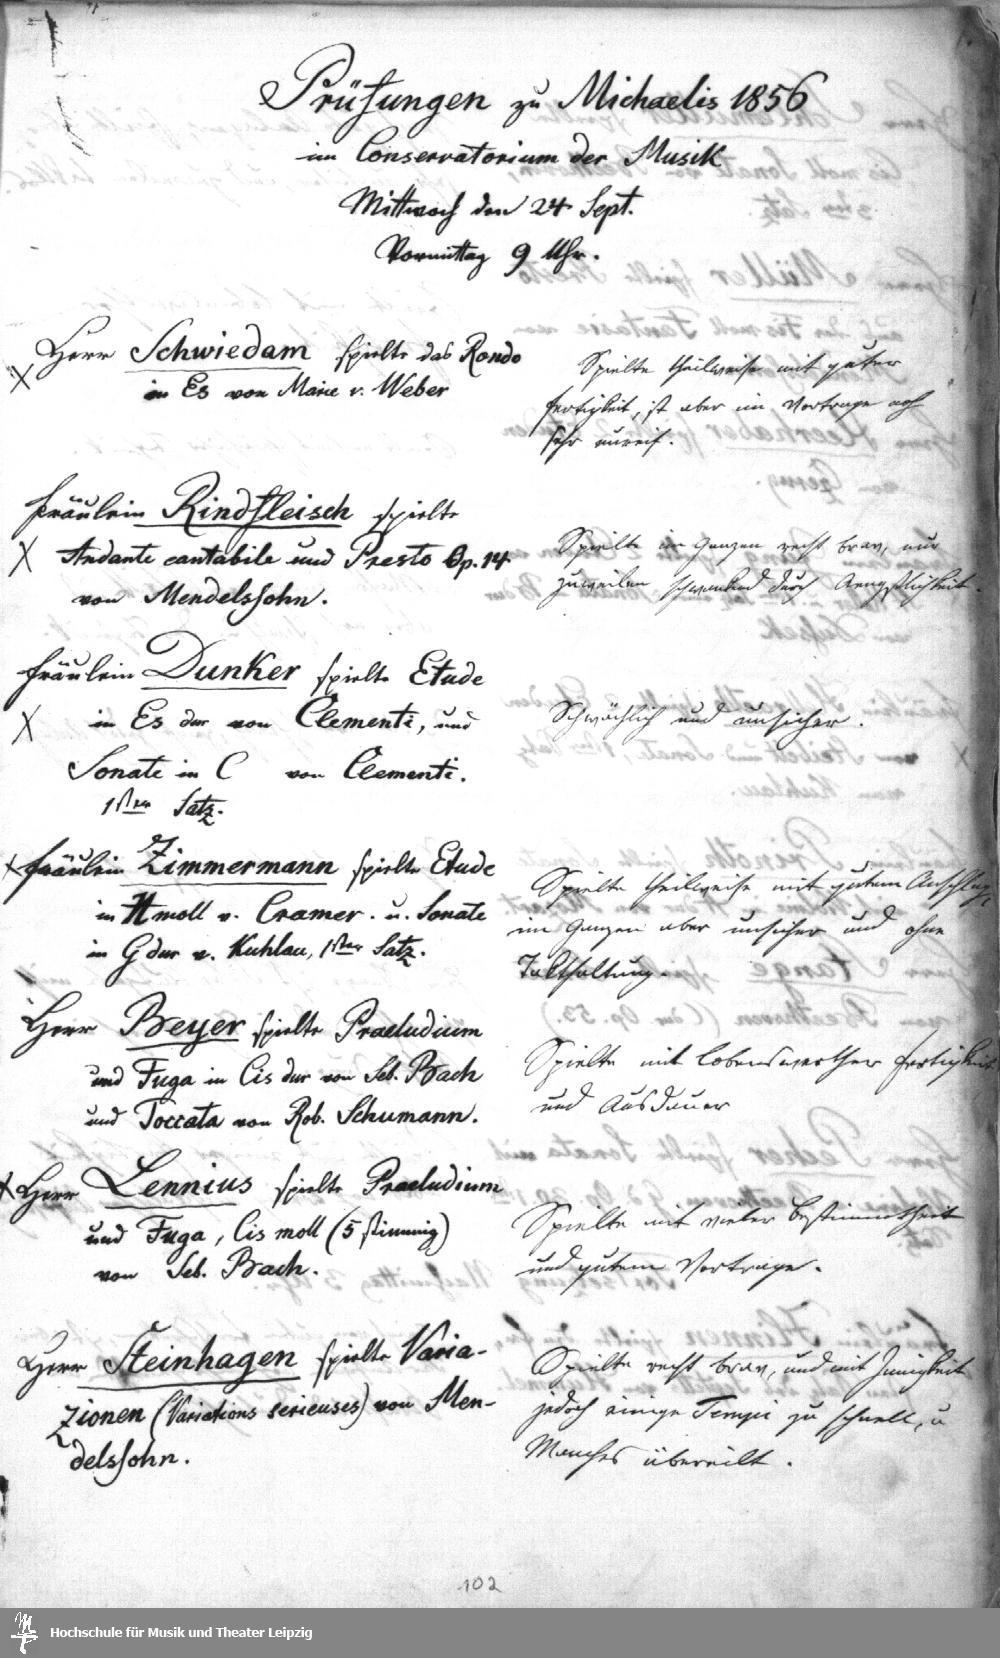 Prüfungen zu Michaelis 1856
im Conservatorium der Musik
Mittwoch den 24 Sept.
Vormittag 9 Uhr.
Herr Schwiedam spielte das Rondo
in Es von Marie v. Weber
Spielte theilweise mit guter
Fertigkeit, ist aber im Vortrage noch
sehr unreif.
Fräulein Rindfleisch spielte
Andante cantabile und Presto Op. 14
von Mendelssohn.
Spielte im Ganzen recht brav, nur
zuweilen schwankend durch Aengstlichkeit.
Fräulein Dunker spielte Etude
in Es dur von Clementi, und
Sonate in C von Clementi.
1ster Satz.
Schwächlich und unsicher.
Fräulein Zimmermann spielte Etude
in H moll v. Cramer. u. Sonate
in G dur v. Kuhlau, 1ster Satz.
Spielte theilweise mit gutem Anschlag,
im Ganzen aber unsicher und ohne
Takthaltung.
Herr Beyer spielte Praeludium
und Fuga in Cis dur von Seb. Bach
und Toccata von Rob. Schumann.
Spielte mit lobenswerther Fertigkeit
und Ausdauer
Herr Lennius spielte Praeludium
und Fuga, Cis moll (5 stimmig)
von Seb. Bach.
Spielte mit vieler Bestimmtheit
und gutem Vortrage.
Herr Steinhagen spielte Varia-
zionen (Variations serieuses) von Men-
delssohn.
Spielte recht brav, und mit Innigkeit
jedoch einige Tempi zu schnell, u
Manches übereilt.
102
Hochschule für Musik und Theater Leipzig